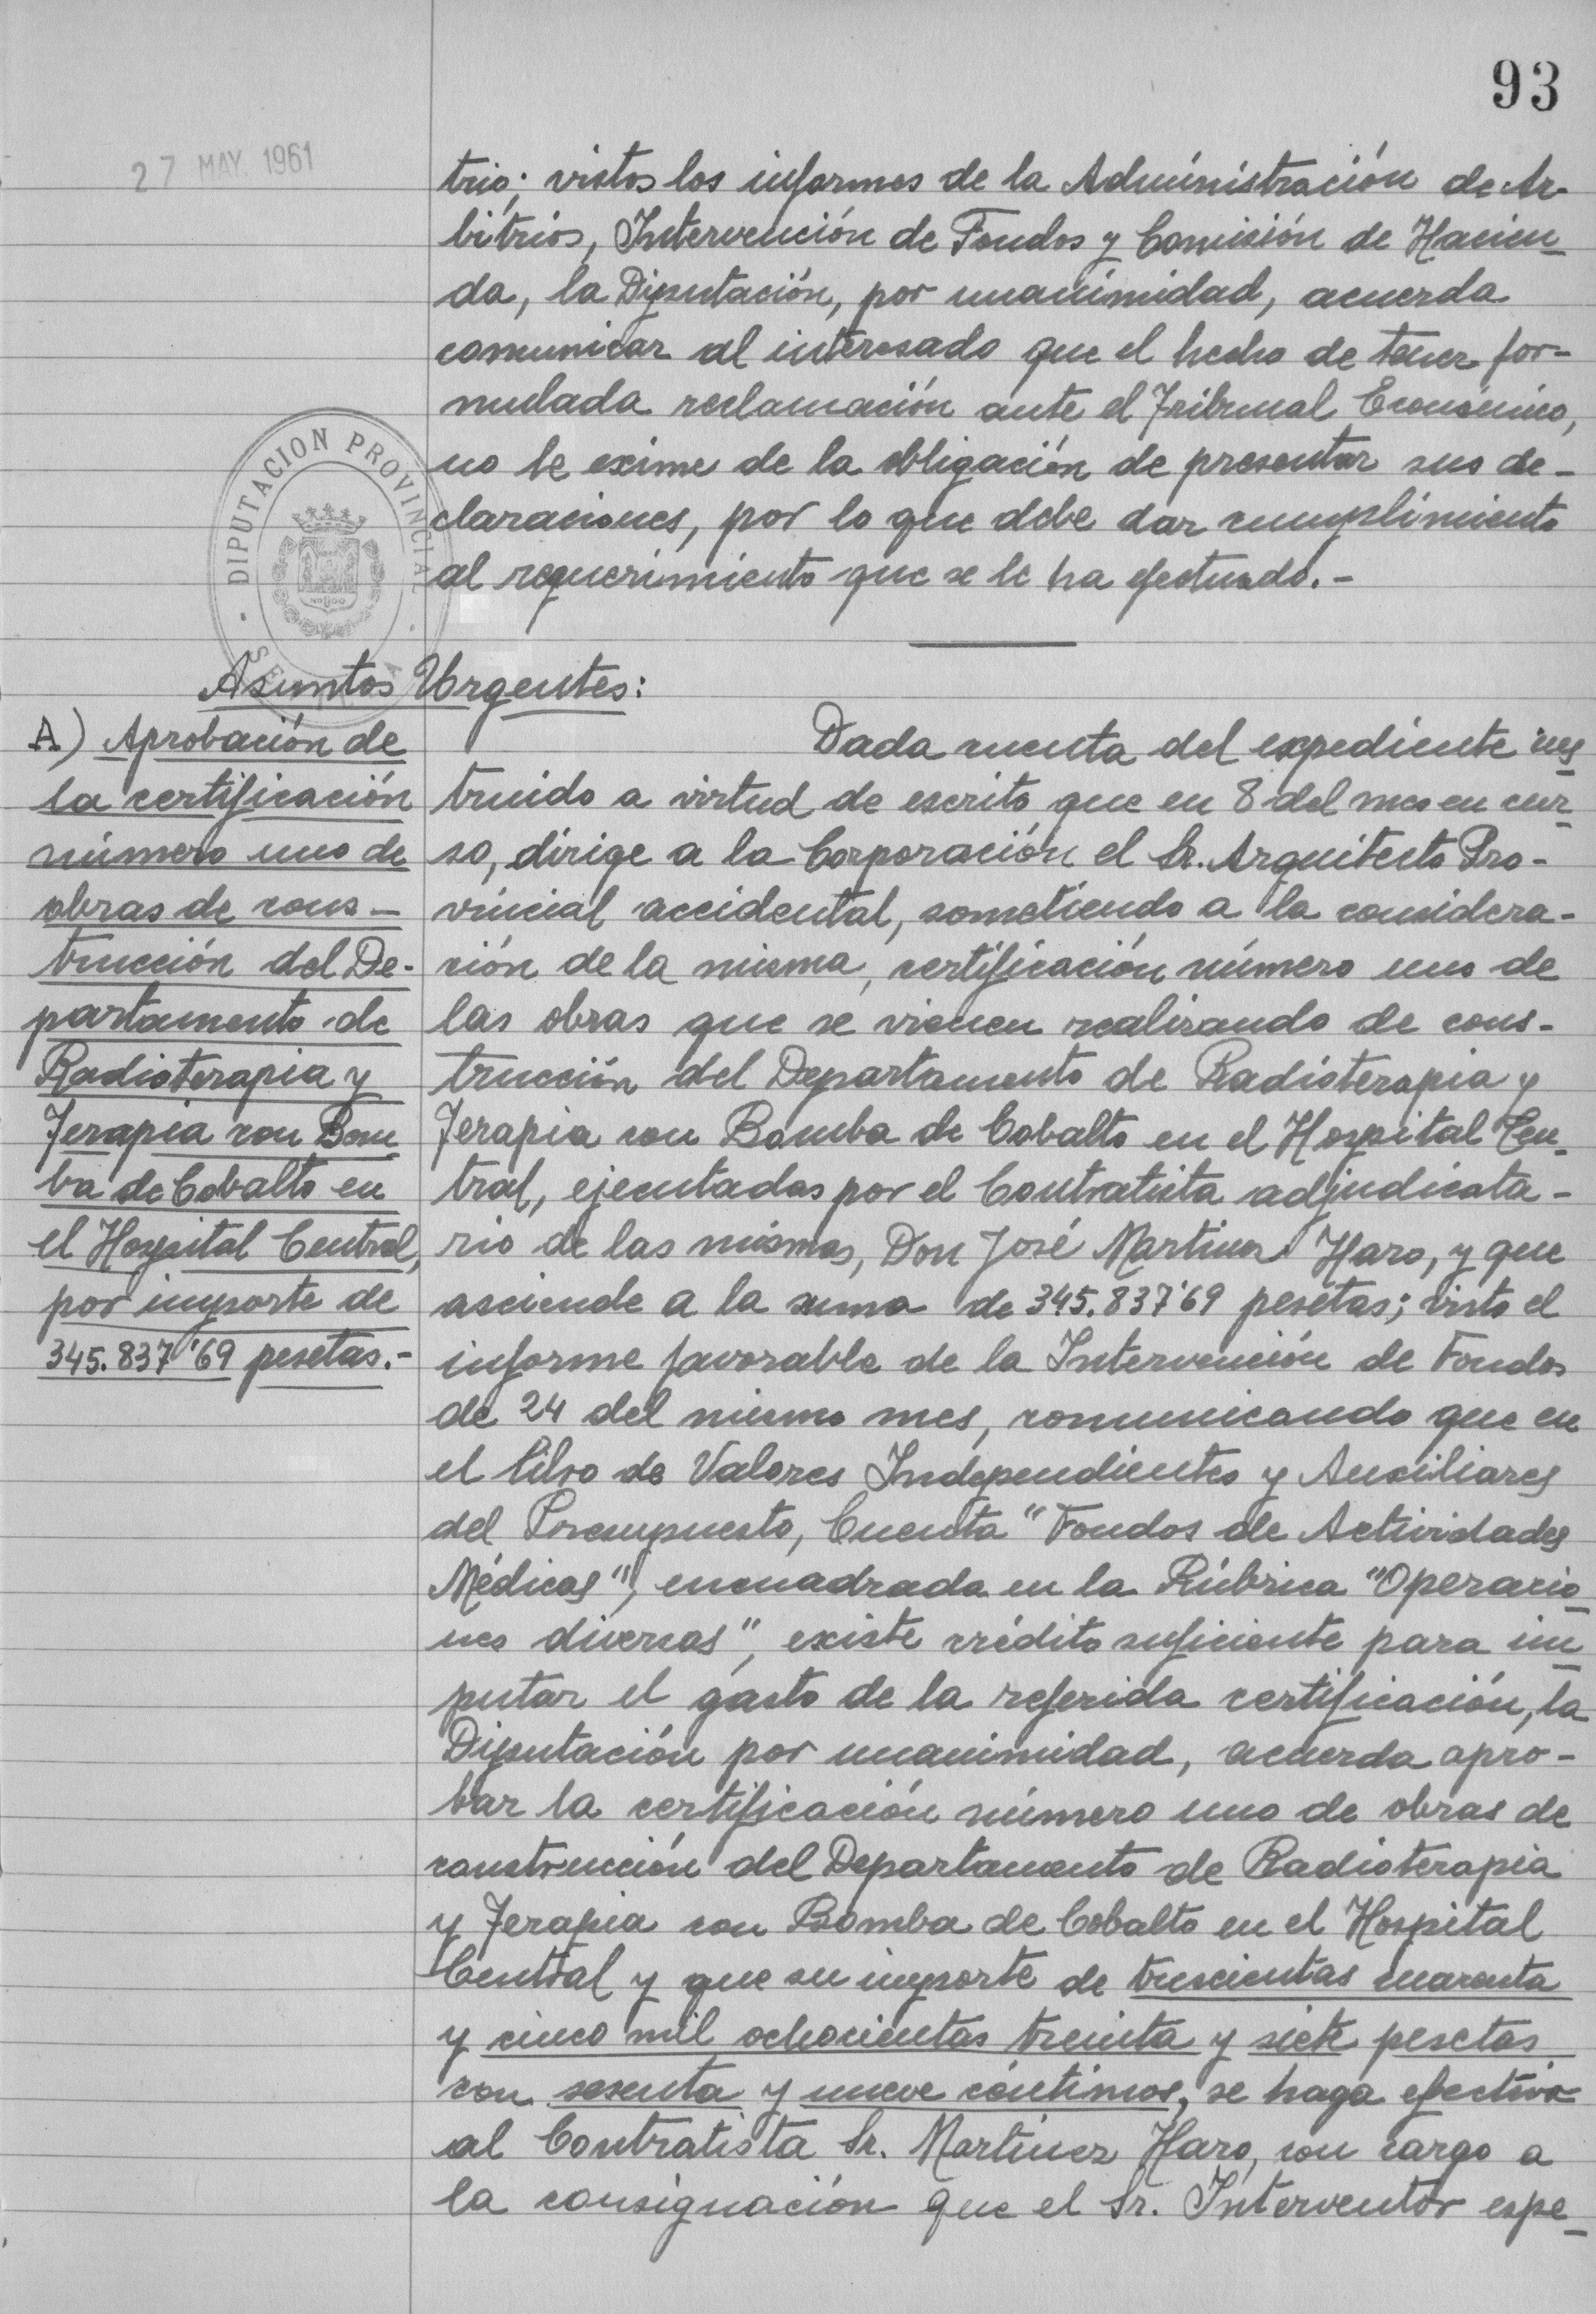 93
27 MAY. 1961
trio; vistos los informes de la Administración de Ar-
bitrios, Intervención de Fondos y Comisión de Hacien-
da, la Diputación, por unanimidad, acuerda
comunicar al interesado que el hecho de tener for-
mulada reclamación ante el Tribunal Económico,
no le exime de la obligación de presentar sus de-
claraciones, por lo que debe dar cumplimiento
al requerimiento que se le ha efectuado.-
DIPUTACION PROVINCIAL
Asuntos Urgentes:
A) Aprobación de
la certificación
número uno de
obras de cons-
trucción del De-
partamento de
Radioterapia y
Terapia con Bom
ba de Cobalto en
el Hospital Central,
por importe de
345.837'69 pesetas.-
Dada cuenta del expediente ins
truido a virtud de escrito que en 8 del mes en cur-
so, dirige a la Corporación el Sr. Arquitecto Pro-
vincial accidental, sometiendo a la considera-
ción de la misma, certificación número uno de
las obras que se vienen realizando de cons-
trucción del Departamento de Radioterapia y
Terapia con Bomba de Cobalto en el Hospital Cen-
tral, ejecutadas por el Contratista adjudicata-
rio de las mismas, Don José Martinez Haro, y que
asciende a la suma de 345.837'69 pesetas; visto el
informe favorable de la Intervención de Fondos
de 24 del mismo mes, comunicando que en
el Libro de Valores Independientes y Auxiliares
del Presupuesto, Cuenta "Fondos de Actividades
Médicas", encuadrada en la Rúbrica "Operacio-
nes diversas", existe crédito suficiente para im
putar el gasto de la referida certificación, la
Diputación por unanimidad, acuerda apro-
bar la certificación número uno de obras de
construcción del Departamento de Radioterapia
y Terapia con Bomba de Cobalto en el Hospital
Central y que su importe de trescientas cuarenta
y cinco mil ochocientas treinta y siete pesetas
con sesenta y nueve céntimos, se haga efectivo
al Contratista Sr. Martinez Haro, con cargo a
la consignación que el Sr. Interventor espe-